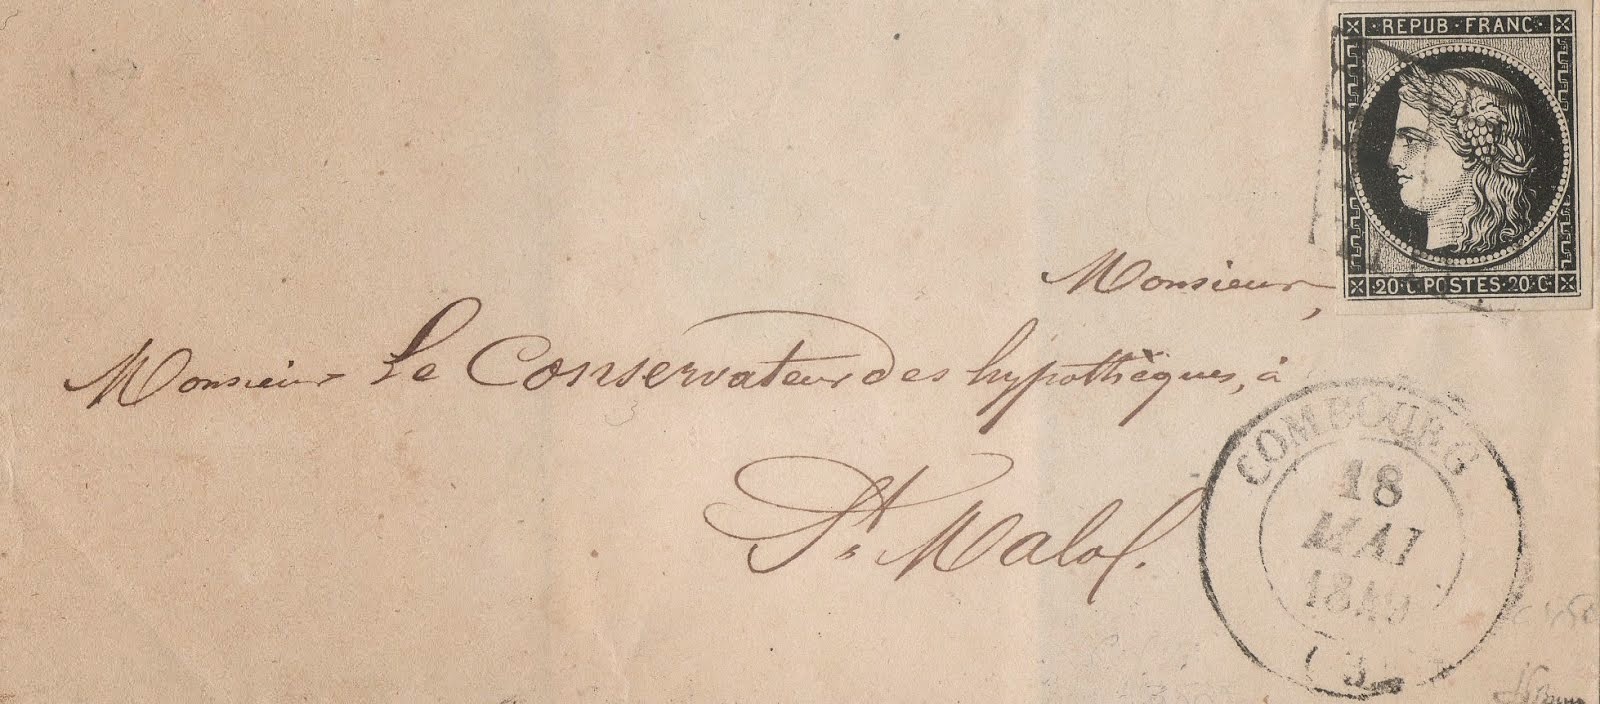 REPUB·FRANC·
20·C·POSTES·20·C·
Monsieur,
Monsieur Le Conservateur des hypothèques, à
St Malo.
COMBOURG
18
MAI
1849